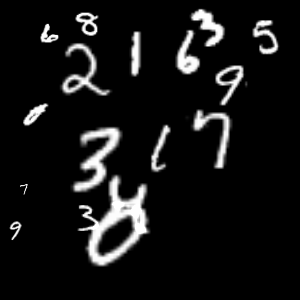 6 8 2 1 6 3 5
9
0 3 1 7
7 3 4
9 0